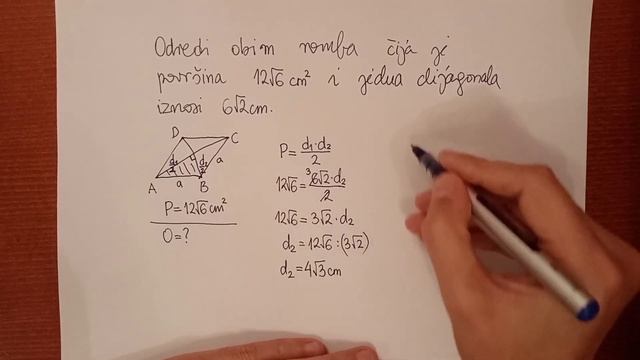 Odredi obim romba čija je
površina 12√6 cm² i jedna dijagonala
iznosi 6√2 cm.
D
C
d₁/2
d₂/2
a
a
A
B
P=12√6 cm²
O=?
P= d₁·d₂/2
12√6= ³6√2·d₂/2
12√6=3√2·d₂
d₂=12√6:(3√2)
d₂=4√3 cm